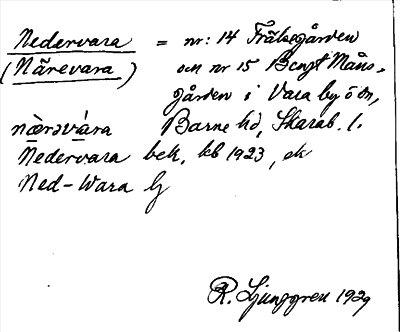 Nedervara = nr: 14 Frälsegården
(Närevara) och nr 15 Bengt Måns-
gården i Vara by ö dn,
nærəvára Barne hd, Skarab. l.
Nedervara bek. kb 1923, ek
Ned-Wara
R. Ljunggren 1929